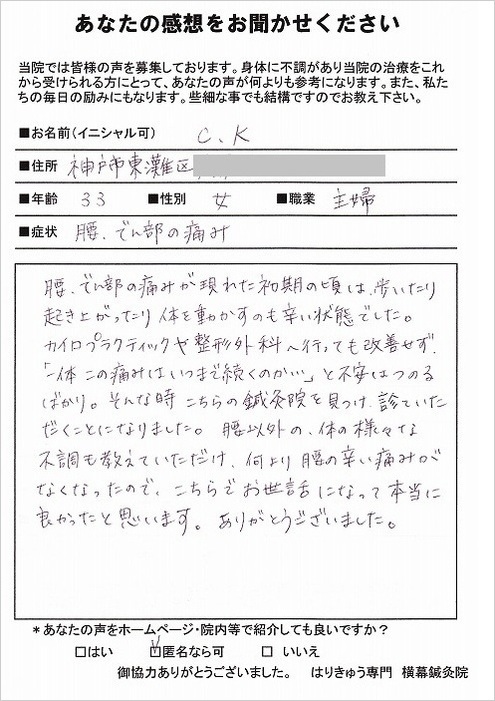 あなたの感想をお聞かせください
当院では皆様の声を募集しております。身体に不調があり当院の治療をこれ
から受けられる方にとって、あなたの声が何よりも参考になります。また、私た
ちの毎日の励みにもなります。些細な事でも結構ですのでお教え下さい。
■お名前(イニシャル可) C、K
■住所 神戸市東灘区
■年齢 33 ■性別 女 ■職業 主婦
■症状 腰、でん部の痛み
腰、でん部の痛みが現れた初期の頃は、歩いたり
起き上がったり体を動かすのも辛い状態でした。
カイロプラクティックや整形外科へ行っても改善せず、
「一体この痛みはいつまで続くのか…」と不安はつのる
ばかり。そんな時こちらの鍼灸院を見つけ、診ていた
だくことになりました。腰以外の、体の様々な
不調も教えていただけ、何より腰の辛い痛みが
なくなったので、こちらでお世話になって本当に
良かったと思います。ありがとうございました。
*あなたの声をホームページ・院内等で紹介しても良いですか?
□はい ☑匿名なら可 □ いいえ
御協力ありがとうございました。 はりきゅう専門 横幕鍼灸院